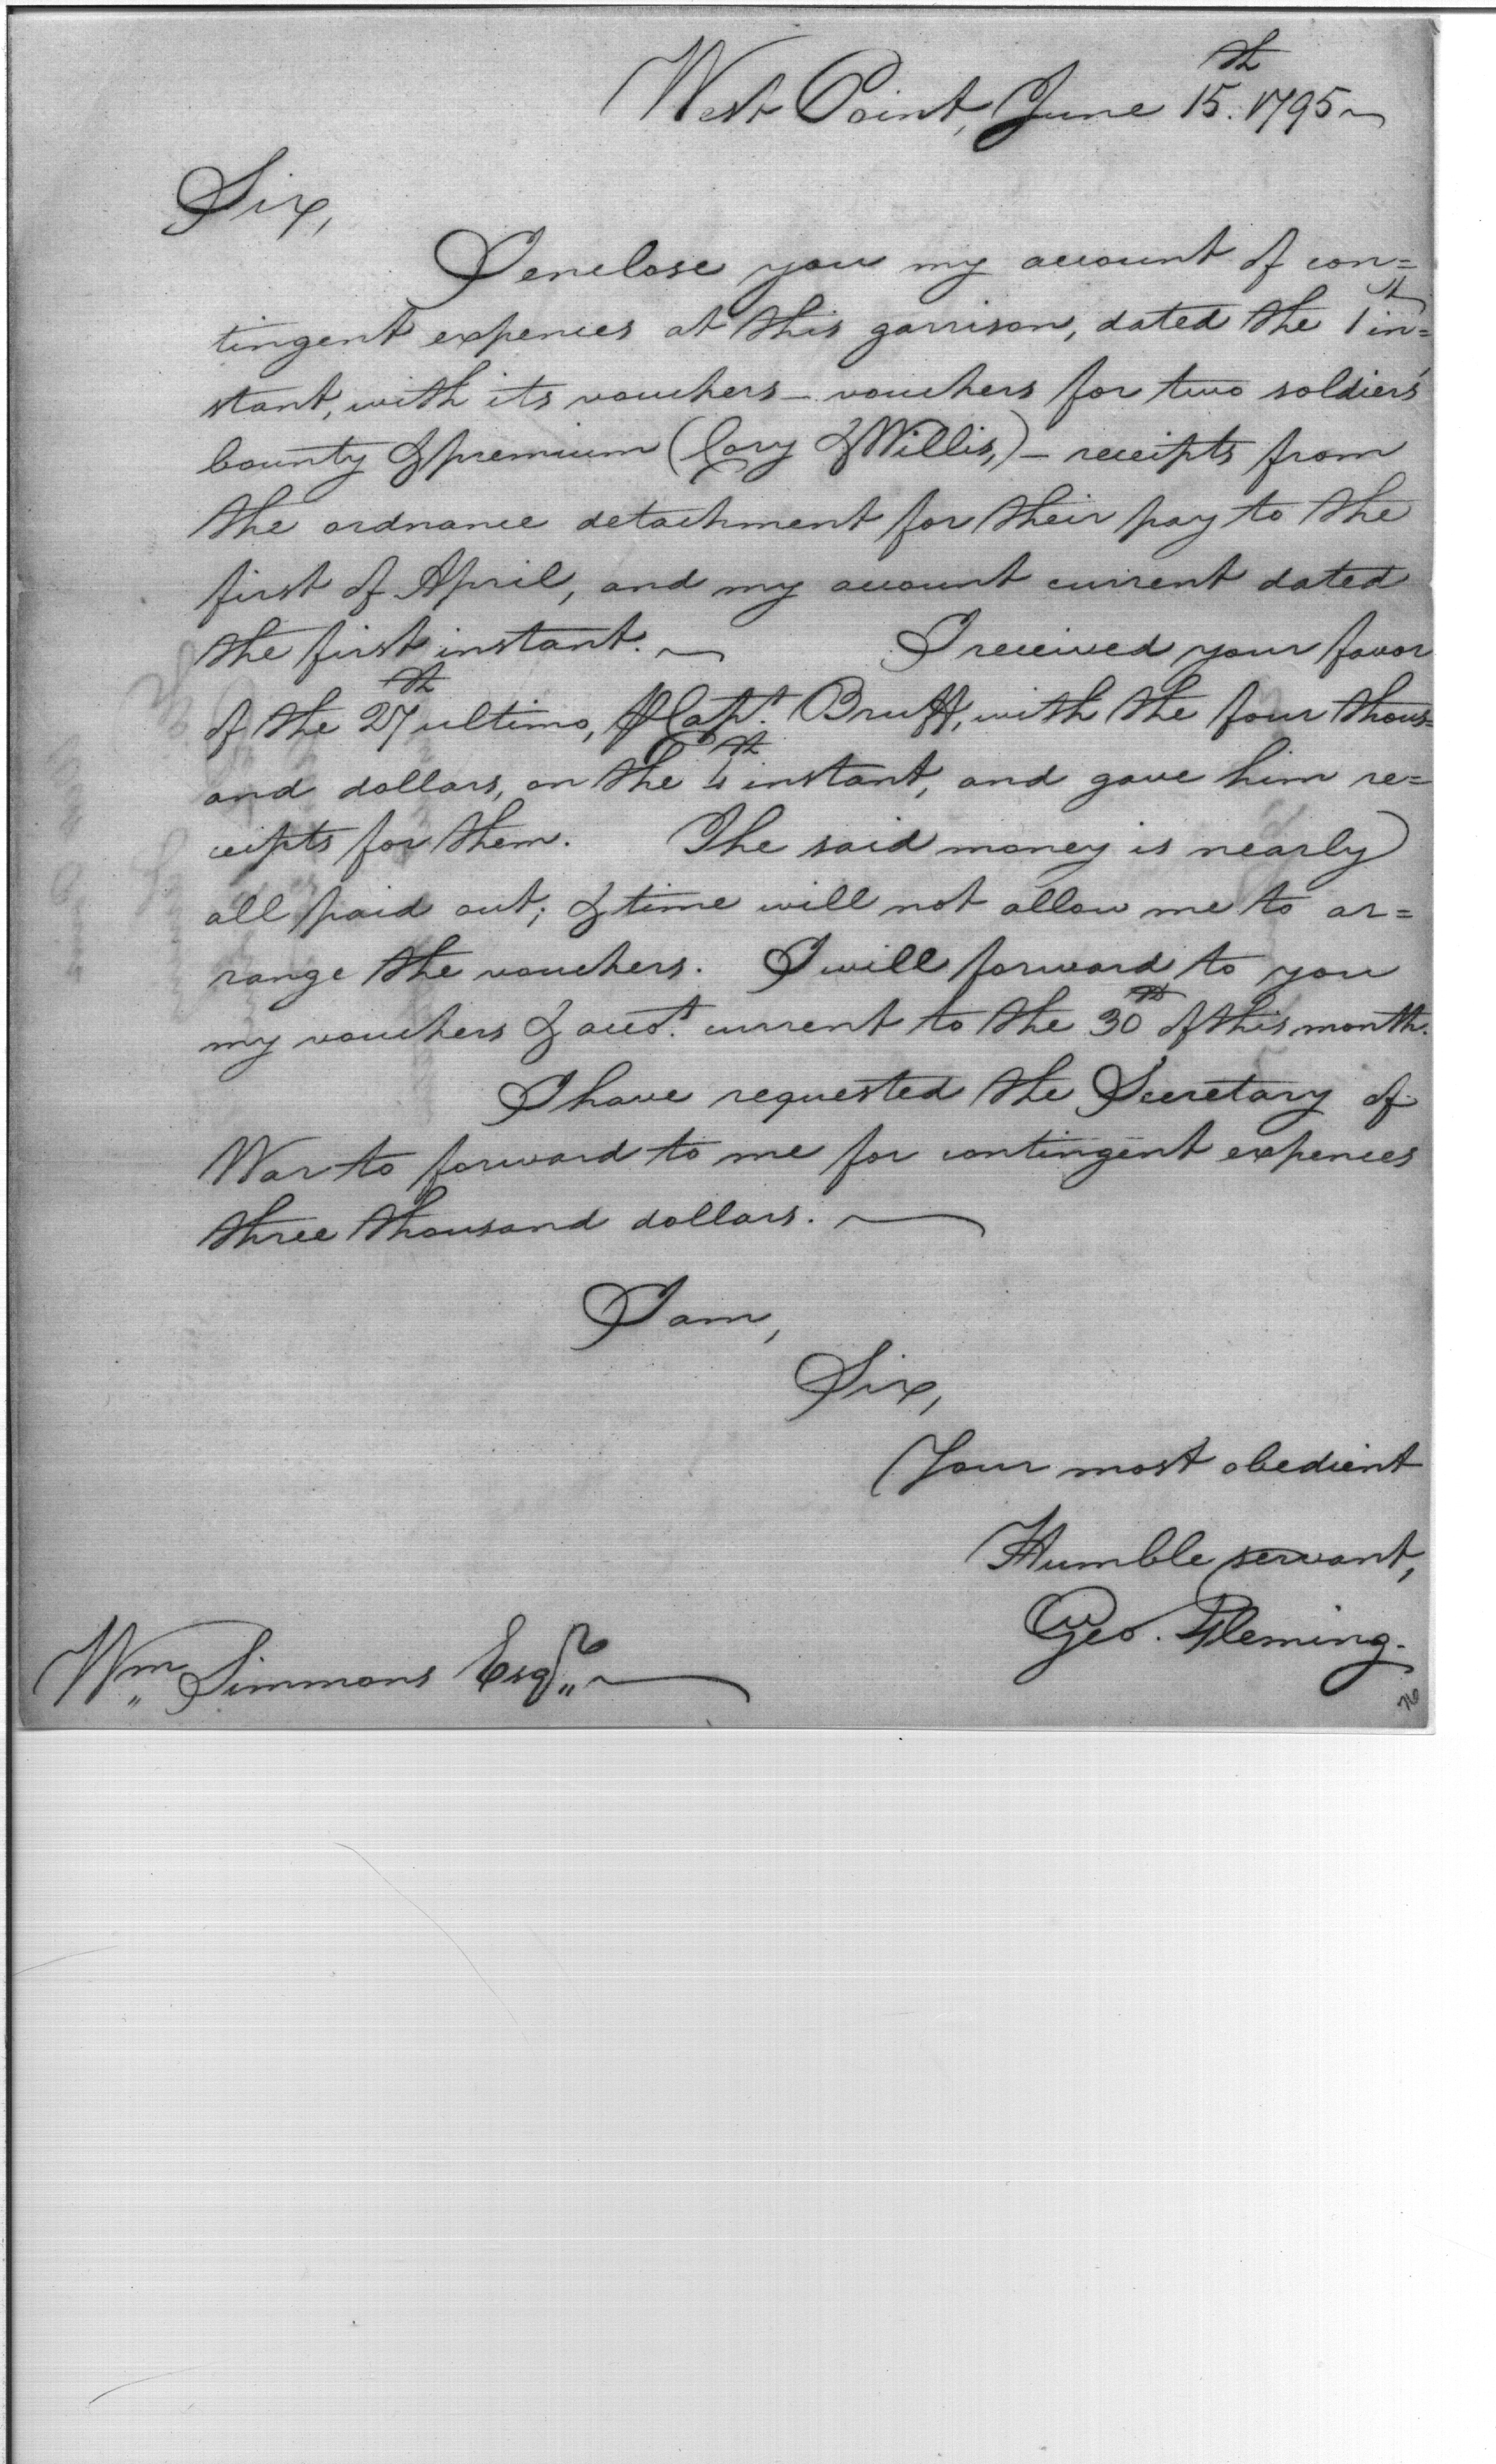 West Point, June 15th. 1795
Sir,
I enclose you my account of con=
tingent expences at this garrison, dated the 1st in=
stant, with its vouchers — vouchers for two soldiers'
bounty & premium (Cory & Willis,) — receipts from
the ordnance detachment for their pay to the
first of April, and my account current dated
the first instant. — I received your favor
of the 27th ultimo, ⅌ Capt. Bruff, with the four thous=
and dollars, on the 4th instant, and gave him re=
ceipts for them. The said money is nearly
all paid out; & time will not allow me to ar=
range the vouchers. I will forward to you
my vouchers & accot. current to the 30th of this month.
I have requested the Secretary of
War to forward to me for contingent expences
three thousand dollars. —
I am,
Sir,
Your most obedient
Humble servant,
Geo. Fleming.
Wm Simmons Esqr.